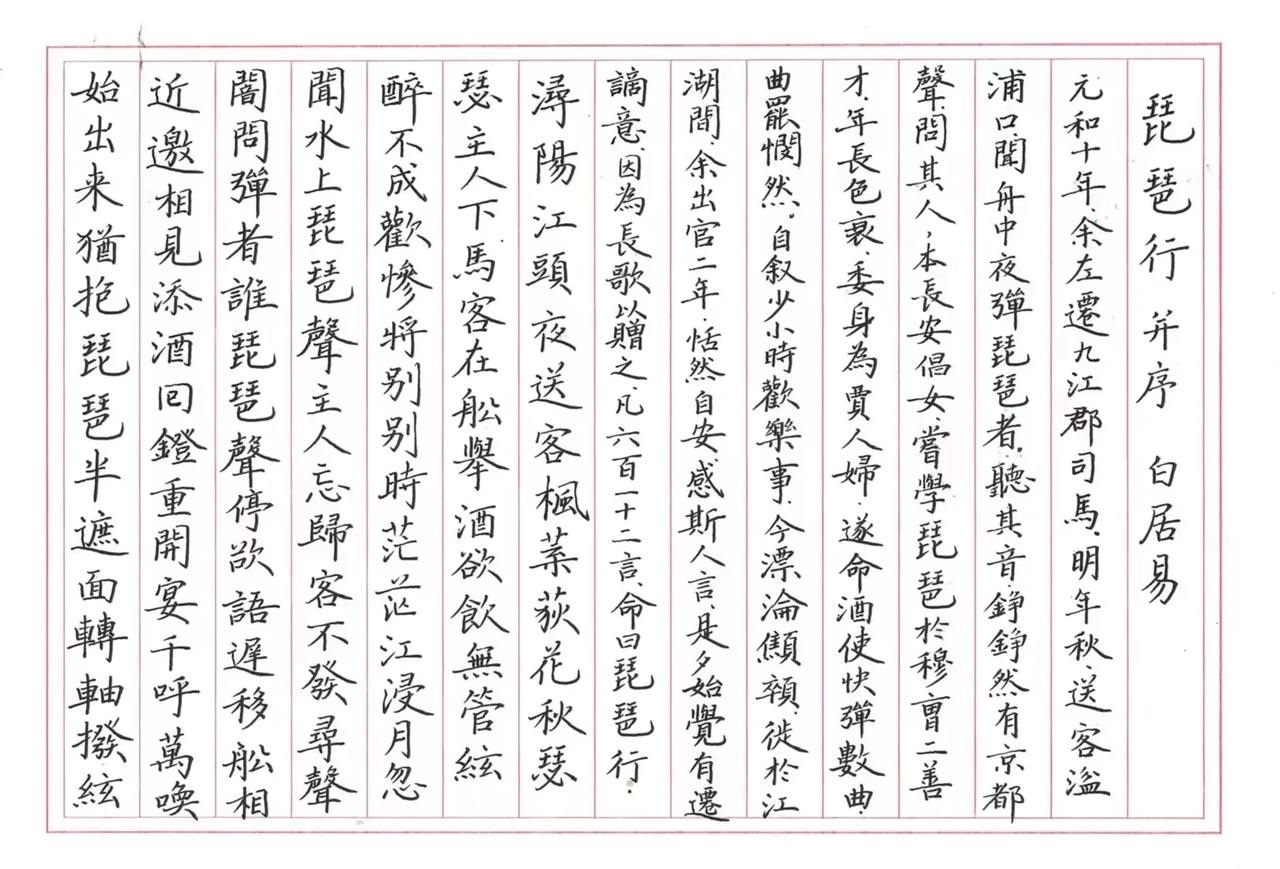 琵琶行并序 白居易
元和十年、余左遷九江郡司馬、明年秋、送客湓
浦口、聞舟中夜彈琵琶者、聽其音、錚錚然有京都
聲、問其人、本長安倡女、嘗學琵琶於穆曹二善
才、年長色衰、委身為賈人婦、遂命酒使快彈數曲、
曲罷憫然、自叙少小時歡樂事、今漂淪顦顇、徙於江
湖間、余出官二年、恬然自安、感斯人言、是夕始覺有遷
謫意、因為長歌以贈之、凡六百一十二言、命曰琵琶行、
潯陽江頭夜送客楓葉荻花秋瑟
瑟主人下馬客在船舉酒欲飲無管絃
醉不成歡慘將别别時茫茫江浸月忽
聞水上琵琶聲主人忘歸客不發尋聲
闇問彈者誰琵琶聲停欲語遲移船相
近邀相見添酒回鐙重開宴千呼萬喚
始出来猶抱琵琶半遮面轉軸撥絃